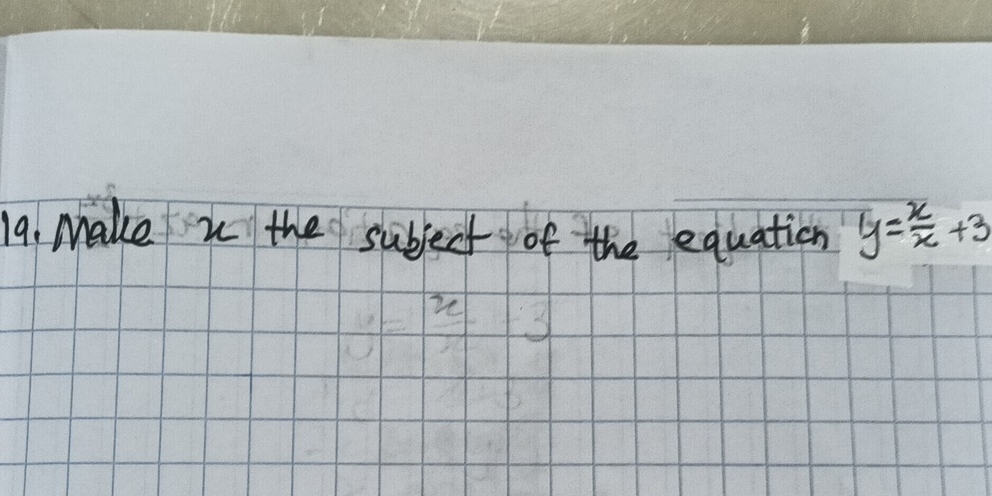 19. Make x the subject of the equation y = x/x + 3
y = x/x + 3